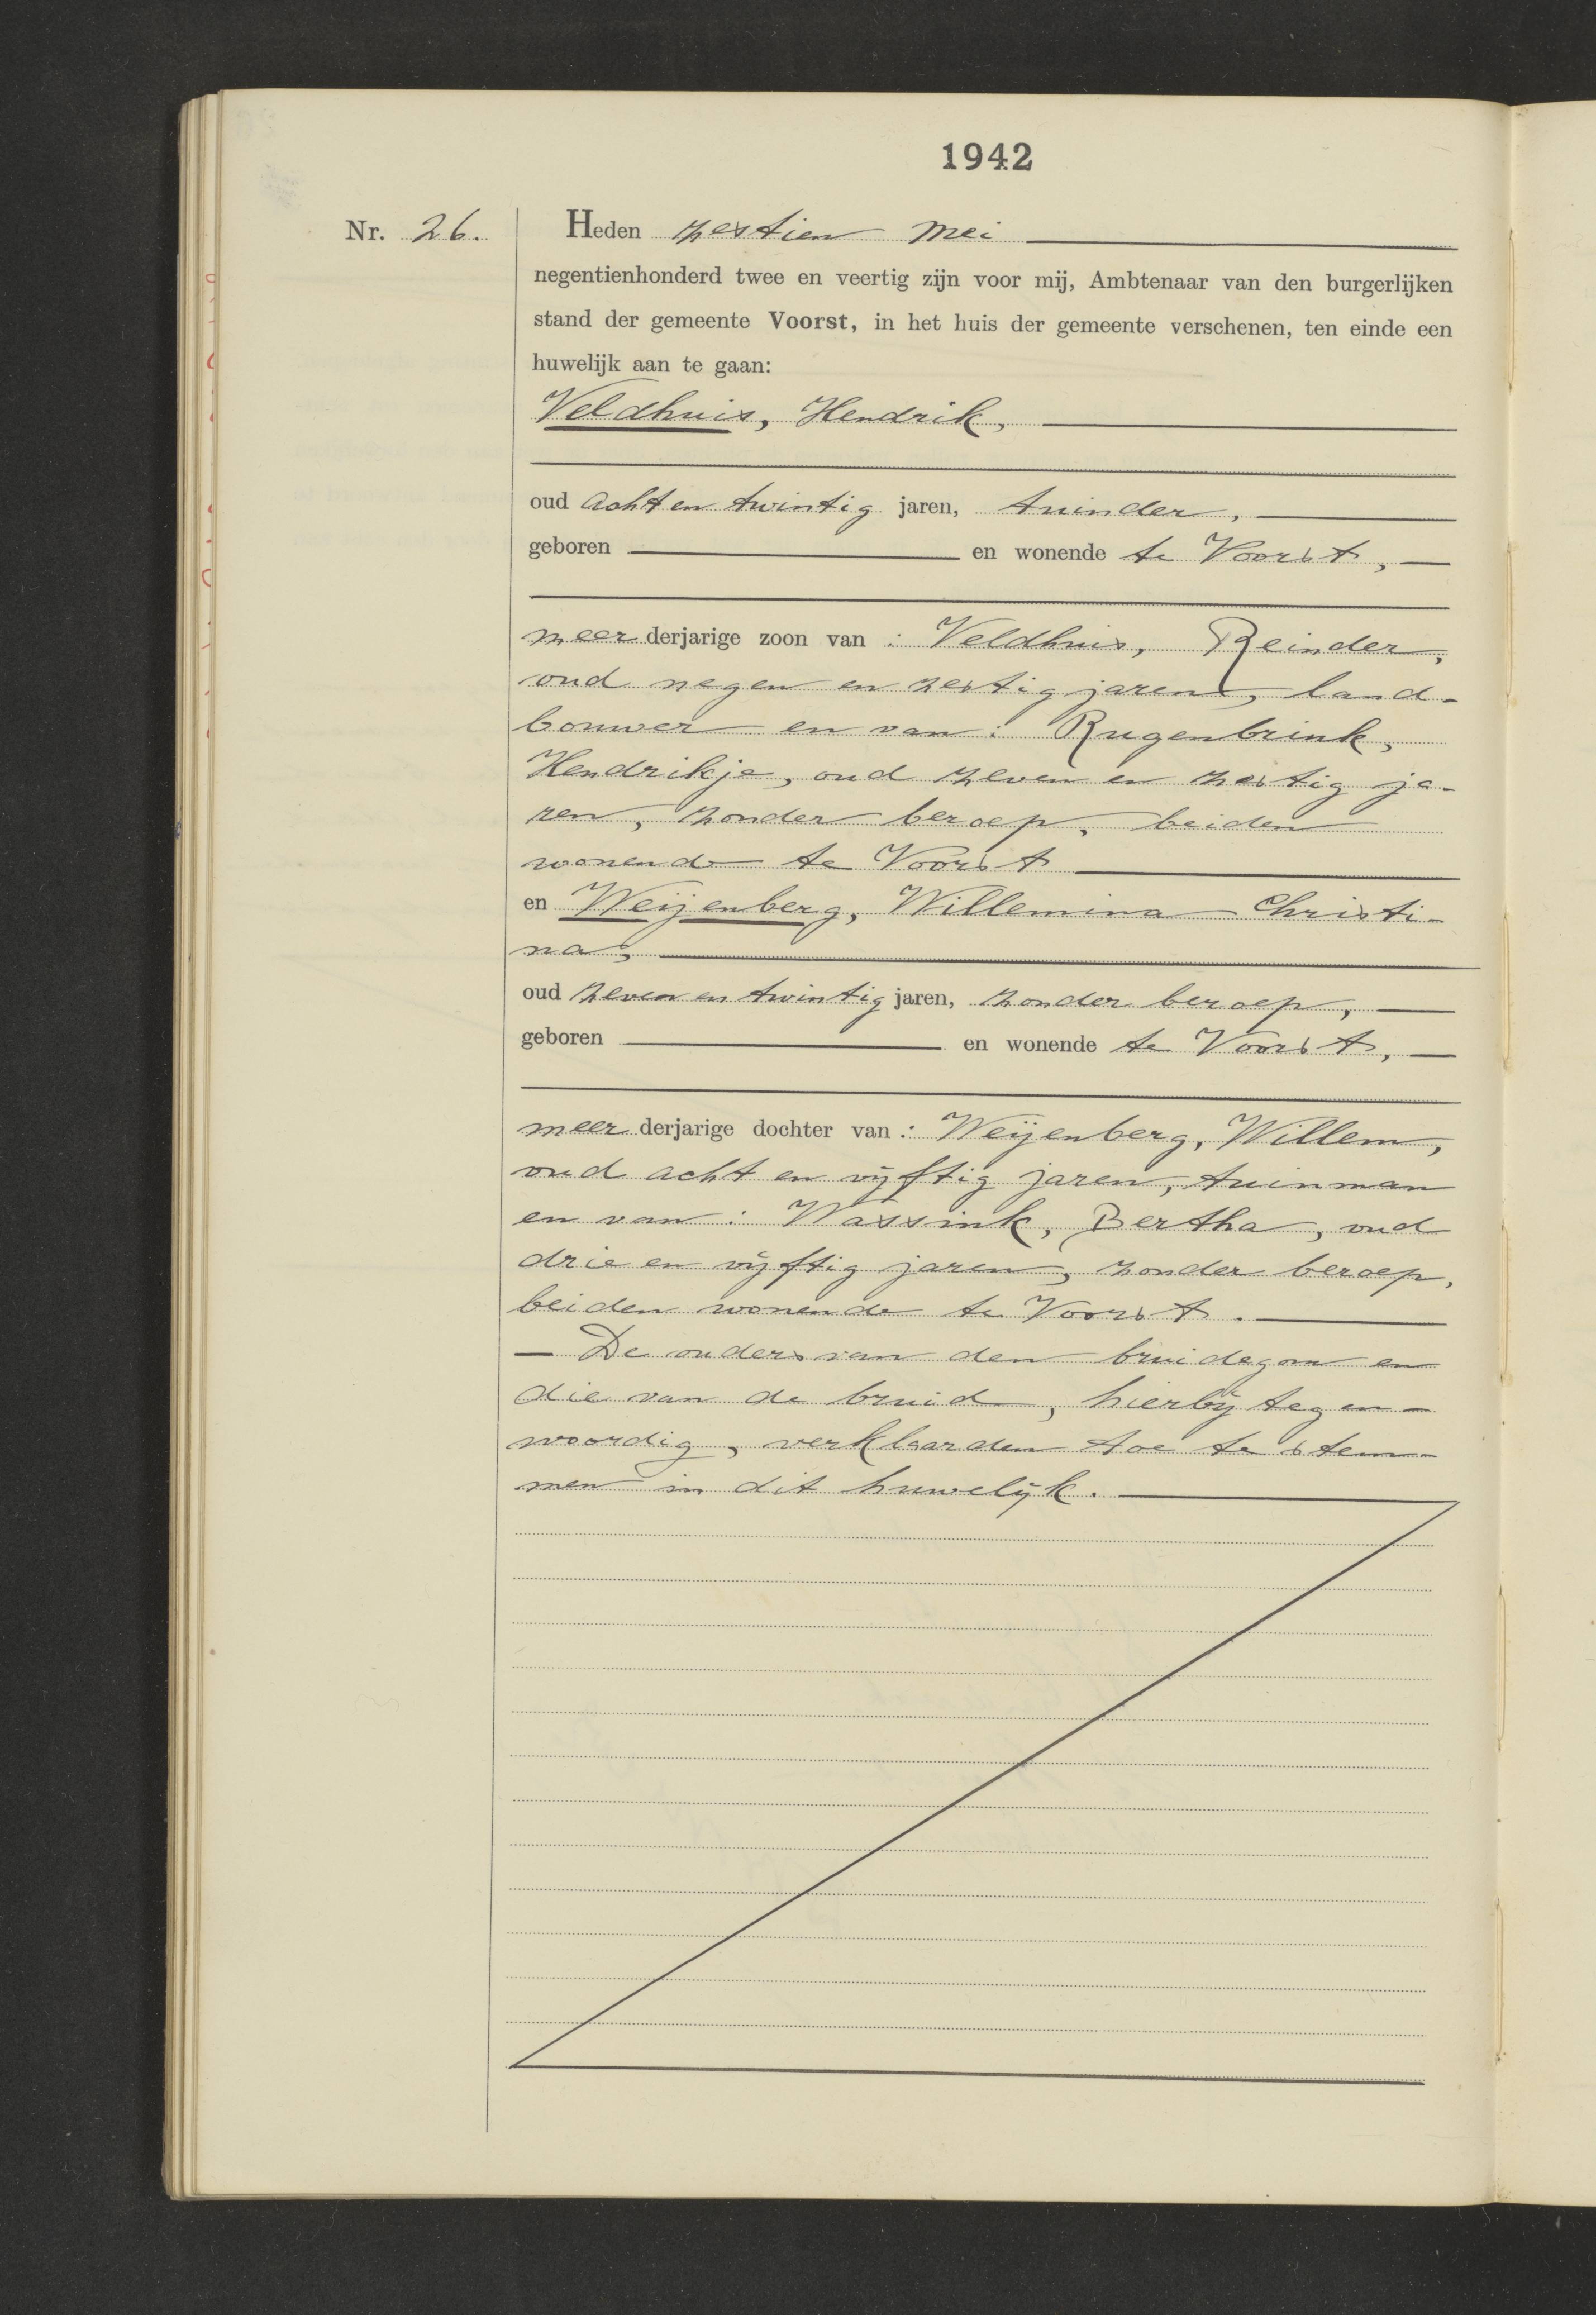 1942
Nr. 26.
Heden zestien Mei
negentienhonderd twee en veertig zijn voor mij, Ambtenaar van den burgerlijken
stand der gemeente Voorst, in het huis der gemeente verschenen, ten einde een
huwelijk aan te gaan:
Veldhuis, Hendrik,
oud acht en twintig jaren, tuinder,
geboren en wonende te Voorst,
meer derjarige zoon van : Veldhuis, Reinder,
oud negen en zestig jaren, land-
bouwer en van : Rugenbrink,
Hendrikje, oud zeven en zestig ja-
ren, zonder beroep, beiden
wonende te Voorst
en Weijenberg, Willemina Christi-
na,
oud zeven en twintig jaren, zonder beroep,
geboren en wonende te Voorst,
meer derjarige dochter van : Weijenberg, Willem,
oud acht en vijftig jaren, tuinman
en van : Wassink, Bertha, oud
drie en vijftig jaren, zonder beroep,
beiden wonende te Voorst.
— De ouders van den bruidegom en
die van de bruid, hierbij tegen-
woordig, verklaarden toe te stem-
men in dit huwelijk.